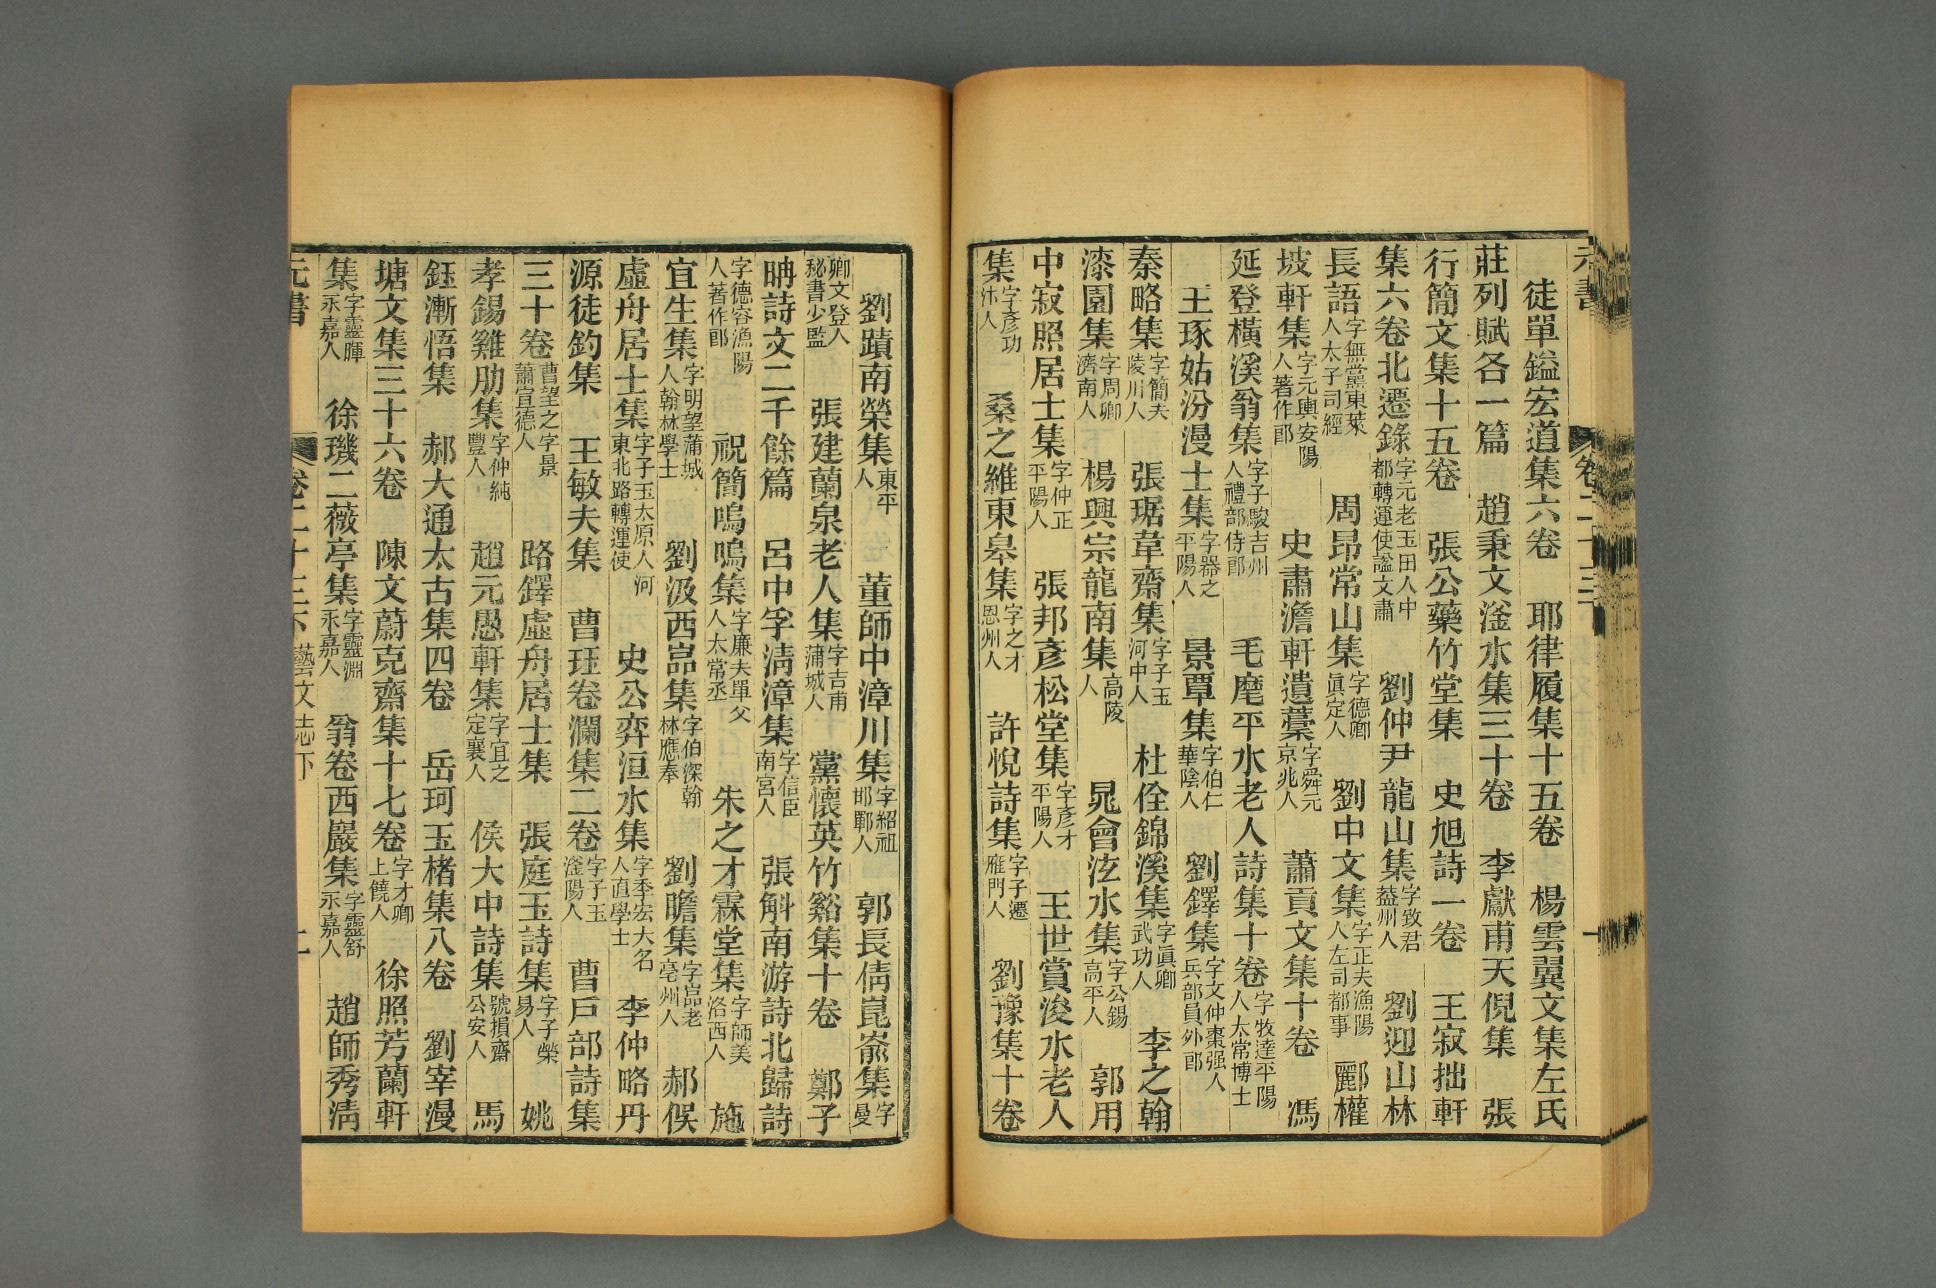 徒單鎰宏道集六卷　耶律履集十五卷　楊雲翼文集左氏
莊列賦各一篇　趙秉文滏水集三十卷　李獻甫天倪集　張
行簡文集十五卷　張公藥竹堂集　史旭詩一卷　王寂拙軒
集六卷北遷錄字元老玉田人中都轉運使諡文肅　劉仲尹龍山集字致君蓋州人　劉迎山林
長語字無黨東萊人太子司經　周昂常山集字德卿眞定人　劉中文集字正夫漁陽人左司都事　酈權
坡軒集字元輿安陽人著作郎　史肅澹軒遺藁字舜元京兆人　蕭貢文集十卷　馮
延登橫溪翁集字子駿吉州人禮部侍郎　毛麾平水老人詩集十卷字牧達平陽人太常博士
王琢姑汾漫士集字器之平陽人　景覃集字伯仁華陰人　劉鐸集字文仲棗强人兵部員外郎
秦略集字簡夫陵川人　張琚韋齋集字子玉河中人　杜佺錦溪集字眞卿武功人　李之翰
漆園集字周卿濟南人　楊興宗龍南集高陵人　晁會泫水集字公錫高平人　郭用
中寂照居士集字仲正平陽人　張邦彥松堂集字彥才平陽人　王世賞浚水老人
集字彥功汴人　桑之維東皋集字之才恩州人　許悅詩集字子遷雁門人　劉豫集十卷
劉蹟南榮集東平人　董師中漳川集字紹祖邯鄲人　郭長倩崑崙集字曼
卿文登人秘書少監　張建蘭泉老人集字吉甫蒲城人　黨懷英竹谿集十卷　鄭子
聃詩文二千餘篇　呂中孚淸漳集字信臣南宮人　張斛南游詩北歸詩
字德容漁陽人著作郎　祝簡嗚嗚集字廉夫單父人太常丞　朱之才霖堂集字師美洛西人　施
宜生集字明望蒲城人翰林學士　劉汲西嵓集字伯深翰林應奉　劉瞻集字嵓老亳州人　郝俁
虛舟居士集字子玉太原人河東北路轉運使　史公弈洹水集字季宏大名人直學士　李仲略丹
源徒釣集　王敏夫集　曹珏卷瀾集二卷字子玉滏陽人　曹戶部詩集
三十卷曹望之字景蕭宣德人　路鐸虛舟居士集　張庭玉詩集字子榮易人　姚
孝錫雞肋集字仲純豐人　趙元愚軒集字宜之定襄人　侯大中詩集號損齋公安人　馬
鈺漸悟集　郝大通太古集四卷　岳珂玉楮集八卷　劉宰漫
塘文集三十六卷　陳文蔚克齋集十七卷字才卿上饒人　徐照芳蘭軒
集字靈暉永嘉人　徐璣二薇亭集字靈淵永嘉人　翁卷西巖集字靈舒永嘉人　趙師秀淸
元書　卷二十三下　藝文志下